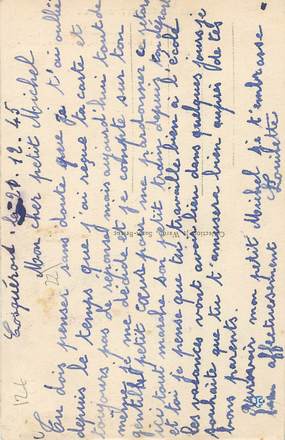 Cosquérou, le 9.12.45
Mon cher petit Michel
Tu dois penser sans doute que je t'ai oublié
depuis le temps que j'ai reçue ta carte et
toujours pas de réponse mais aujourd'hui tout de
même je me décide et je compte sur ton
gentil petit cœur pour me pardonner ce retard
ici tout marche son petit train depuis ton départ
et toi je pense que tu travaille bien a l'école
les vacances vont avoir lieu dans quelques jours je
souhaite que tu t'amusera bien auprès de tes
bons parents.
mon petit Michel je t'embrasse
affectueusement
Louisette
126
22